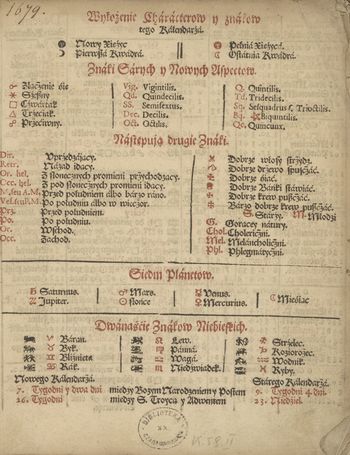 1679.
Wyłożenie Charácterow y znákow
tego Kalendarzá.
Nowy Kieżyc
Pełnia Kieżycá.
Pierwsza Kwádrá.
Ostátnia Kwádrá.
Znáki Stárych y Nowych Aspectow.
Złączenie się
Szesny
Czwartak
Trzeciak.
Przeciwny.
Vig. Vigintilis.
Qd. Quindecilis.
SS. Semisextus.
Dec. Decilis.
Oct. Octilis.
Q. Quintilis.
Td. Tridecilis.
Sq. Sesquadrus f. Trioctilis.
Bq. Biquintilis.
Qc. Quincunx.
Nástępuią drugie Znáki.
Dir. Uprzedzáiący.
Retr. Názad idacy.
Or. hel. Z słonecznych promieni przychodzący.
Occ. hel. Z pod słonecznych promieni idący.
Przed południem álbo báro ráno.
Po południu álbo w wieczor.
Prz. Przed południem.
Po. Po południu.
Or. Wschod.
Occ. Zachod.
Dobrze włosy strzydz.
Dobrze drzewo spuszczáć.
Dobrze siać.
Dobrze Bánki stáwiáć.
Dobrze krew puszczáć.
Bárzo dobrze krew puszczáć.
S. Stáry. M. Młodzi
G. Gorącey nátury.
Chol. Cholericżni.
Mel. Meláncholicżni.
Phl. Phlegmátycżni.
Siedm Plánetow.
♄ Saturnus.
♃ Jupiter.
♂ Mars.
☉ słońce
♀ Venus.
☿ Mercurius.
☾ Miesiąc
Dwánaście Znákow Niebieskich.
Báran.
Byk.
Bliźnietá
Rák.
Lew.
Pánná.
Wagá.
Niedźwiádek.
Strzelec.
Koziorożec.
Wodnik.
Ryby.
Nowego Kálendarzá.
Stárego Kálendarzá.
7. Tygodni y dwá dni między Bozem Národzeniem y Postem 9. Tygodni 4. dni.
26. Tygodni między S. Troycą y Adwentem 23. Niedziel.
BIBLIOTEKA